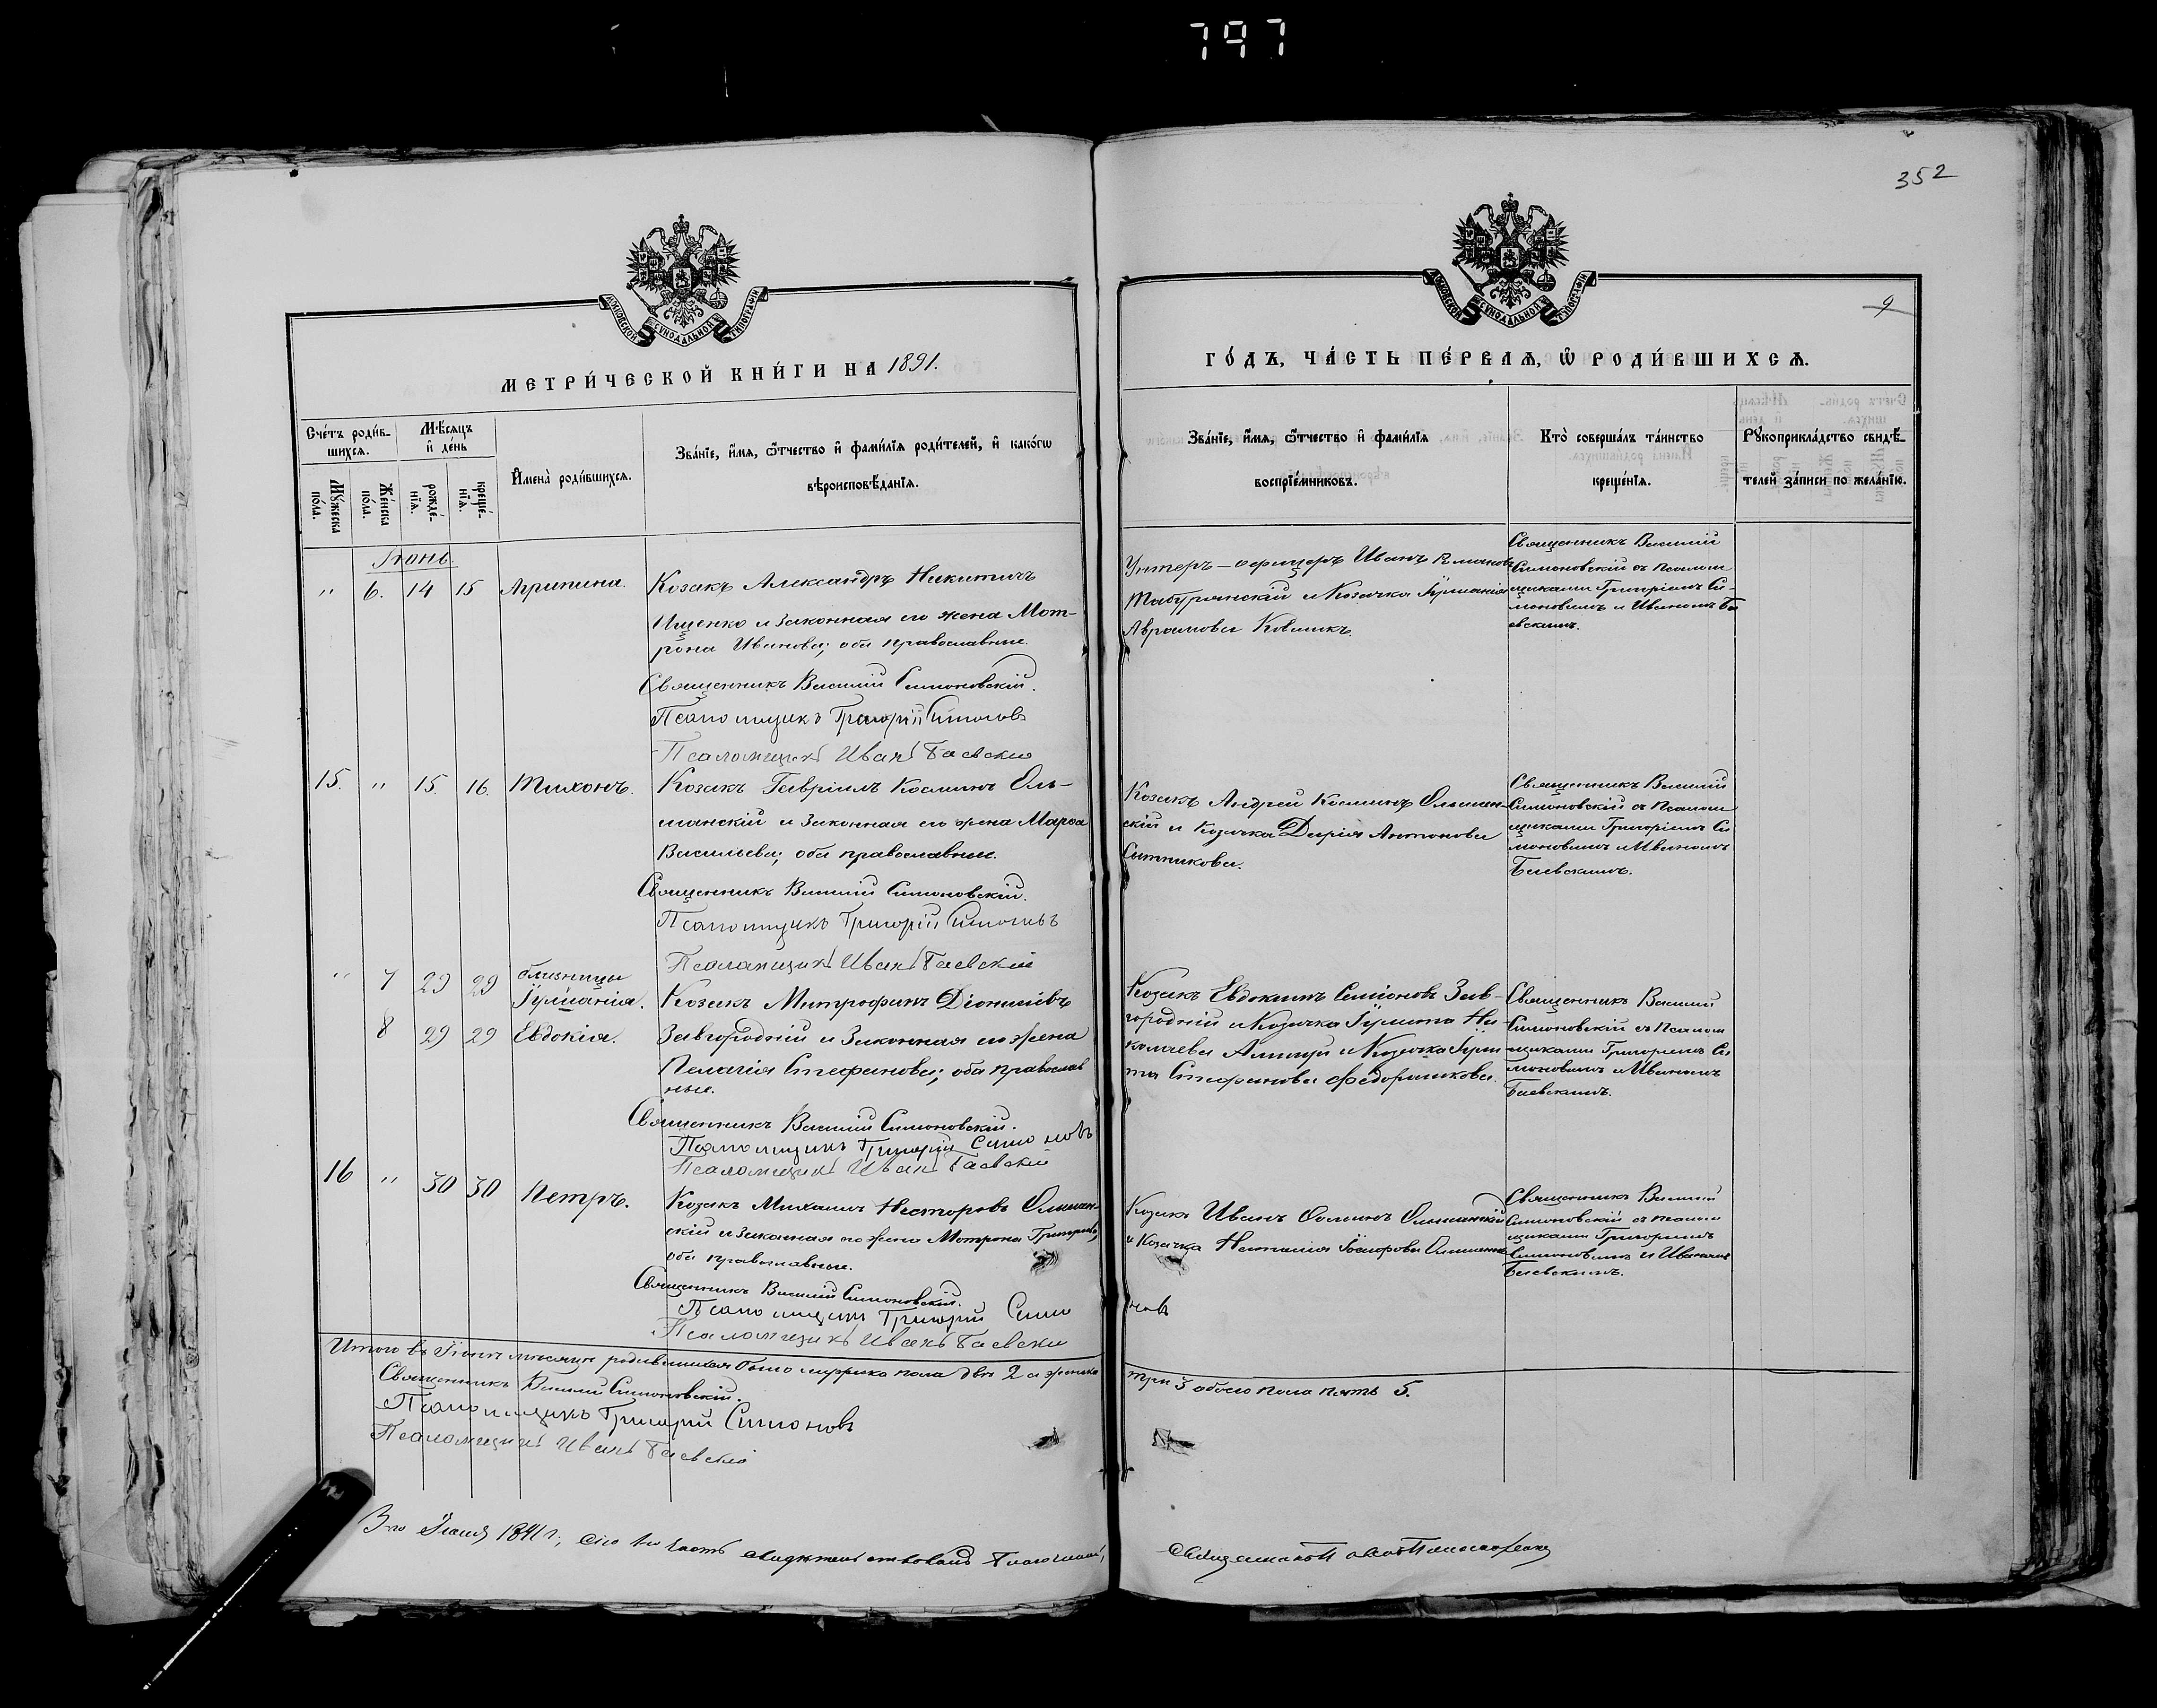 797
352
9
МОСКОВСКОЙ СУНОДАЛЬНОЙ ТУПОГРАФІИ
МОСКОВСКОЙ СУНОДАЛЬНОЙ ТУПОГРАФІИ
МЕТРИ́ЧЕСКОЙ КНИ́ГИ НА 1891.
ГО́ДЪ, ЧА́СТЬ ПЕ́РВАѦ, Ѡ РОДИ́ВШИХСѦ.
Сче́тъ роди́в-
шихсѧ.
Мꙋжеска по́ла.
Же́нска по́ла.
Мѣ́сѧцъ и де́нь
рожде́-
нїѧ.
креще́-
нїѧ.
Имена̀ роди́вшихсѧ.
Зва́нїе, и́мѧ, ѻ́тчество и фами́лїѧ роди́телей, и како́гѡ
вѣроисповѣ́данїѧ.
Зва́нїе, и́мѧ, ѻ́тчество и фами́лїѧ
воспрїе́мниковъ.
Кто̀ соверша́лъ та́инство
креще́нїѧ.
Рꙋкоприкла́дство свидѣ́-
телей за́писи по жела́нїю.
Іюнь
" 6. 14 15 Агрипина. Козакъ Александръ Никитичъ
Ищенко и законная его жена Мот-
рона Иванова; оба православные.
Священникъ Василій Симоновскій.
Псаломщикъ Григорій Симоновъ
Псаломщикъ Иванъ Баевскій
Унтеръ-офицеръ Иванъ
Табурянскій и Козачка Іуліанія
Авраамова
Священникъ Василій
Симоновскій съ Псалом
щиками Григоріемъ Си-
моновымъ и Иваномъ Ба
евскимъ.
15. " 15. 16. Тихонъ. Козакъ Гавріилъ Косминъ Оль-
шанскій и законная его жена Марѳа
Васильева; оба православные.
Священникъ Василій Симоновскій.
Псаломщикъ Григорій Симоновъ
Псаломщикъ Иванъ Баевскій
Козакъ Андрей Косминъ Ольшан-
скій и Козачка Дарія Антонова
Ситникова.
Священникъ Василій
Симоновскій съ Псалом
щиками Григоріемъ Си
моновымъ и Иваномъ
Баевскимъ.
" 7 29 29 близницы
Іуліанія. Козакъ Митрофанъ Діонисіевъ
8 29 29 Евдокія. Завгородній и законная его жена
Пелагія Стефанова; оба православ
ные.
Священникъ Василій Симоновскій.
Псаломщикъ Григорій Симоновъ
Псаломщикъ Иванъ Баевскій
Козакъ Евдокимъ Симоновъ Зав-
городній и Козачка Іулита Ни-
колаева и Козачка
Стефанова Федоришкова.
Священникъ Василій
Симоновскій съ Псалом
щиками Григоріемъ Си
моновымъ и Иваномъ
Баевскимъ.
16 " 30 30 Петръ. Козакъ Михаилъ Несторовъ Ольшан-
скій и законная его жена Мотрона Григорьева;
оба православные.
Священникъ Василій Симоновскій.
Псаломщикъ Григорій Симо
новъ
Псаломщикъ Иванъ Баевскій
Козакъ Иванъ Ольшанскій
и Козачка Наталія Іосифова
Священникъ Василій
Симоновскій съ Псалом
щиками Григоріемъ
Симоновымъ и Иваномъ
Баевскимъ.
Итого въ Іюнѣ мѣсяцѣ родившихся было мужеска пола два 2 а женска три 3 обоего пола пять 5.
Священникъ Василій Симоновскій.
Псаломщикъ Григорій Симоновъ
Псаломщикъ Иванъ Баевскій
3-го 1891 г., сію 1-ю часть свидѣтельствовалъ